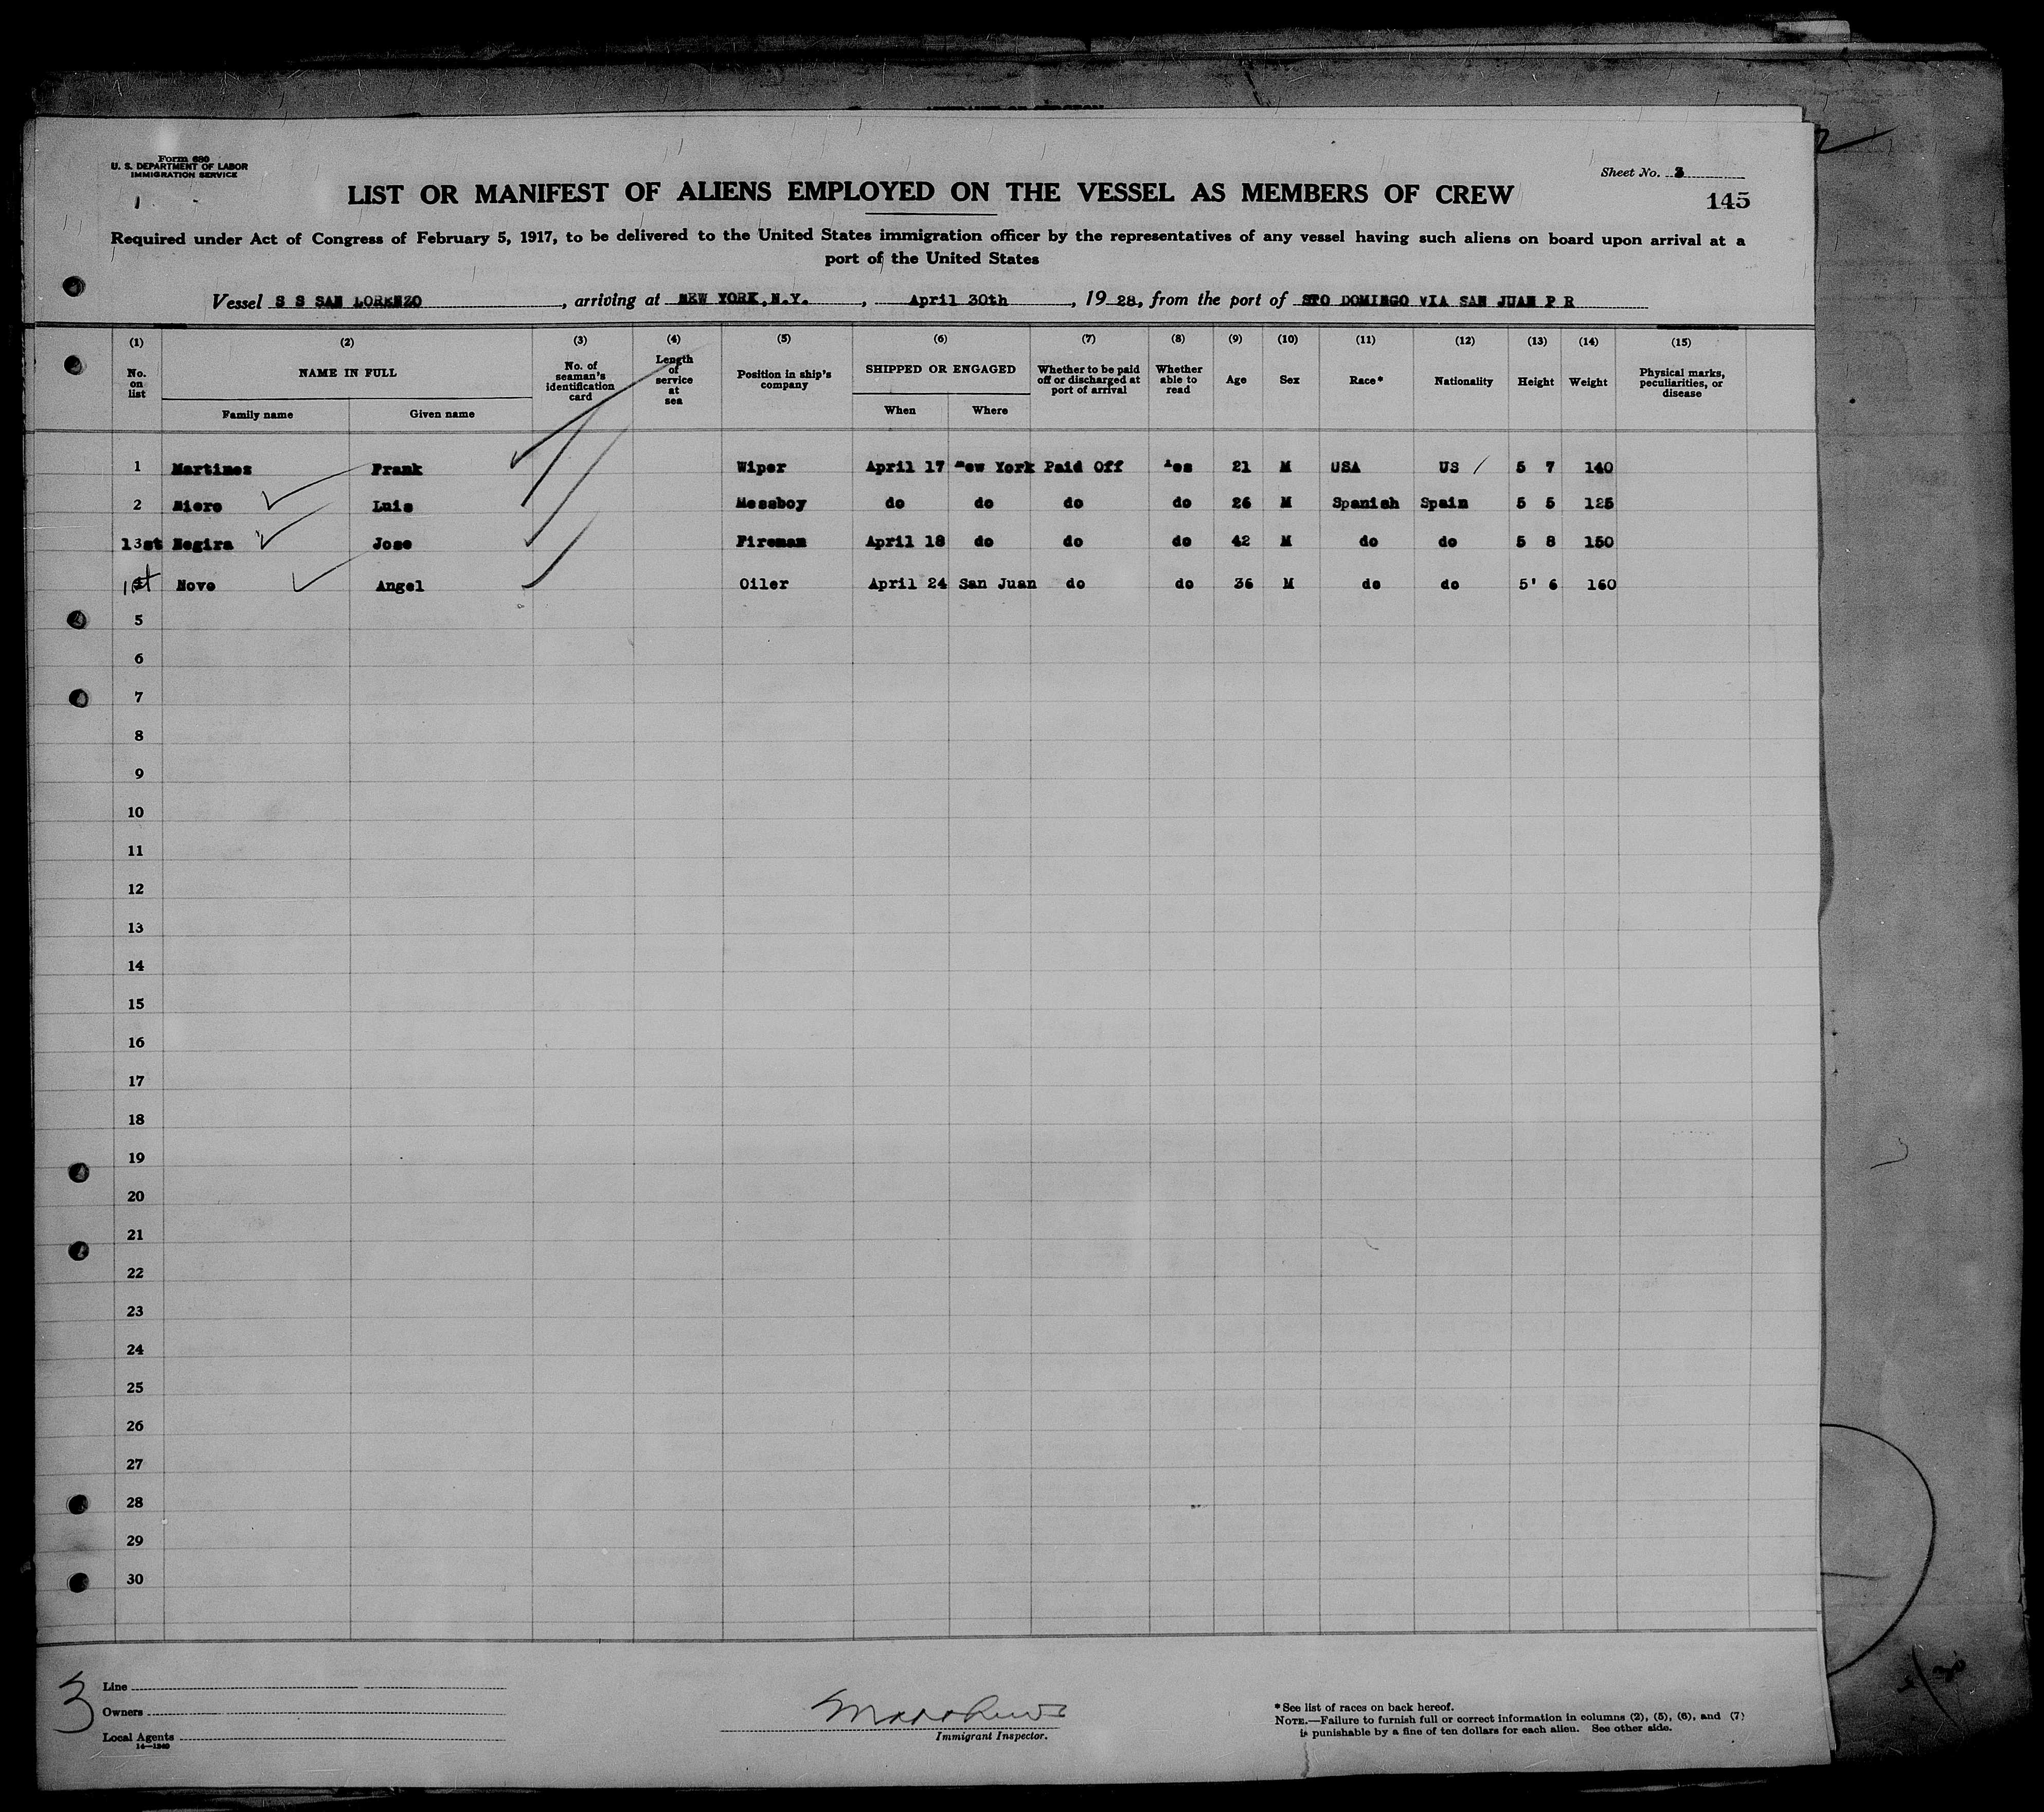 Form 680
U. S. DEPARTMENT OF LABOR
IMMIGRATION SERVICE
Sheet No. 3
145
LIST OR MANIFEST OF ALIENS EMPLOYED ON THE VESSEL AS MEMBERS OF CREW
Required under Act of Congress of February 5, 1917, to be delivered to the United States immigration officer by the representatives of any vessel having such aliens on board upon arrival at a
port of the United States
Vessel S S SAN LORENZO, arriving at NEW YORK,N.Y., April 30th, 1928, from the port of STO DOMINGO VIA SAN JUAN P R
(1) (2) (3) (4) (5) (6) (7) (8) (9) (10) (11) (12) (13) (14) (15)
No. on list NAME IN FULL Family name Given name No. of seaman's identification card Length of service at sea Position in ship's company SHIPPED OR ENGAGED When Where Whether to be paid off or discharged at port of arrival Whether able to read Age Sex Race* Nationality Height Weight Physical marks, peculiarities, or disease
1 Martines Frank Wiper April 17 New York Paid Off Yes 21 M USA US 5 7 140
2 Miero Luis Messboy do do do do 26 M Spanish Spain 5 5 125
13st Negira Jose Fireman April 18 do do do 42 M do do 5 8 150
1st Novo Angel Oiler April 24 San Juan do do 36 M do do 5' 6 160
5
6
7
8
9
10
11
12
13
14
15
16
17
18
19
20
21
22
23
24
25
26
27
28
29
30
3
Line
Owners
Local Agents
14—1240
Immigrant Inspector.
*See list of races on back hereof.
NOTE.—Failure to furnish full or correct information in columns (2), (5), (6), and (7)
is punishable by a fine of ten dollars for each alien. See other side.